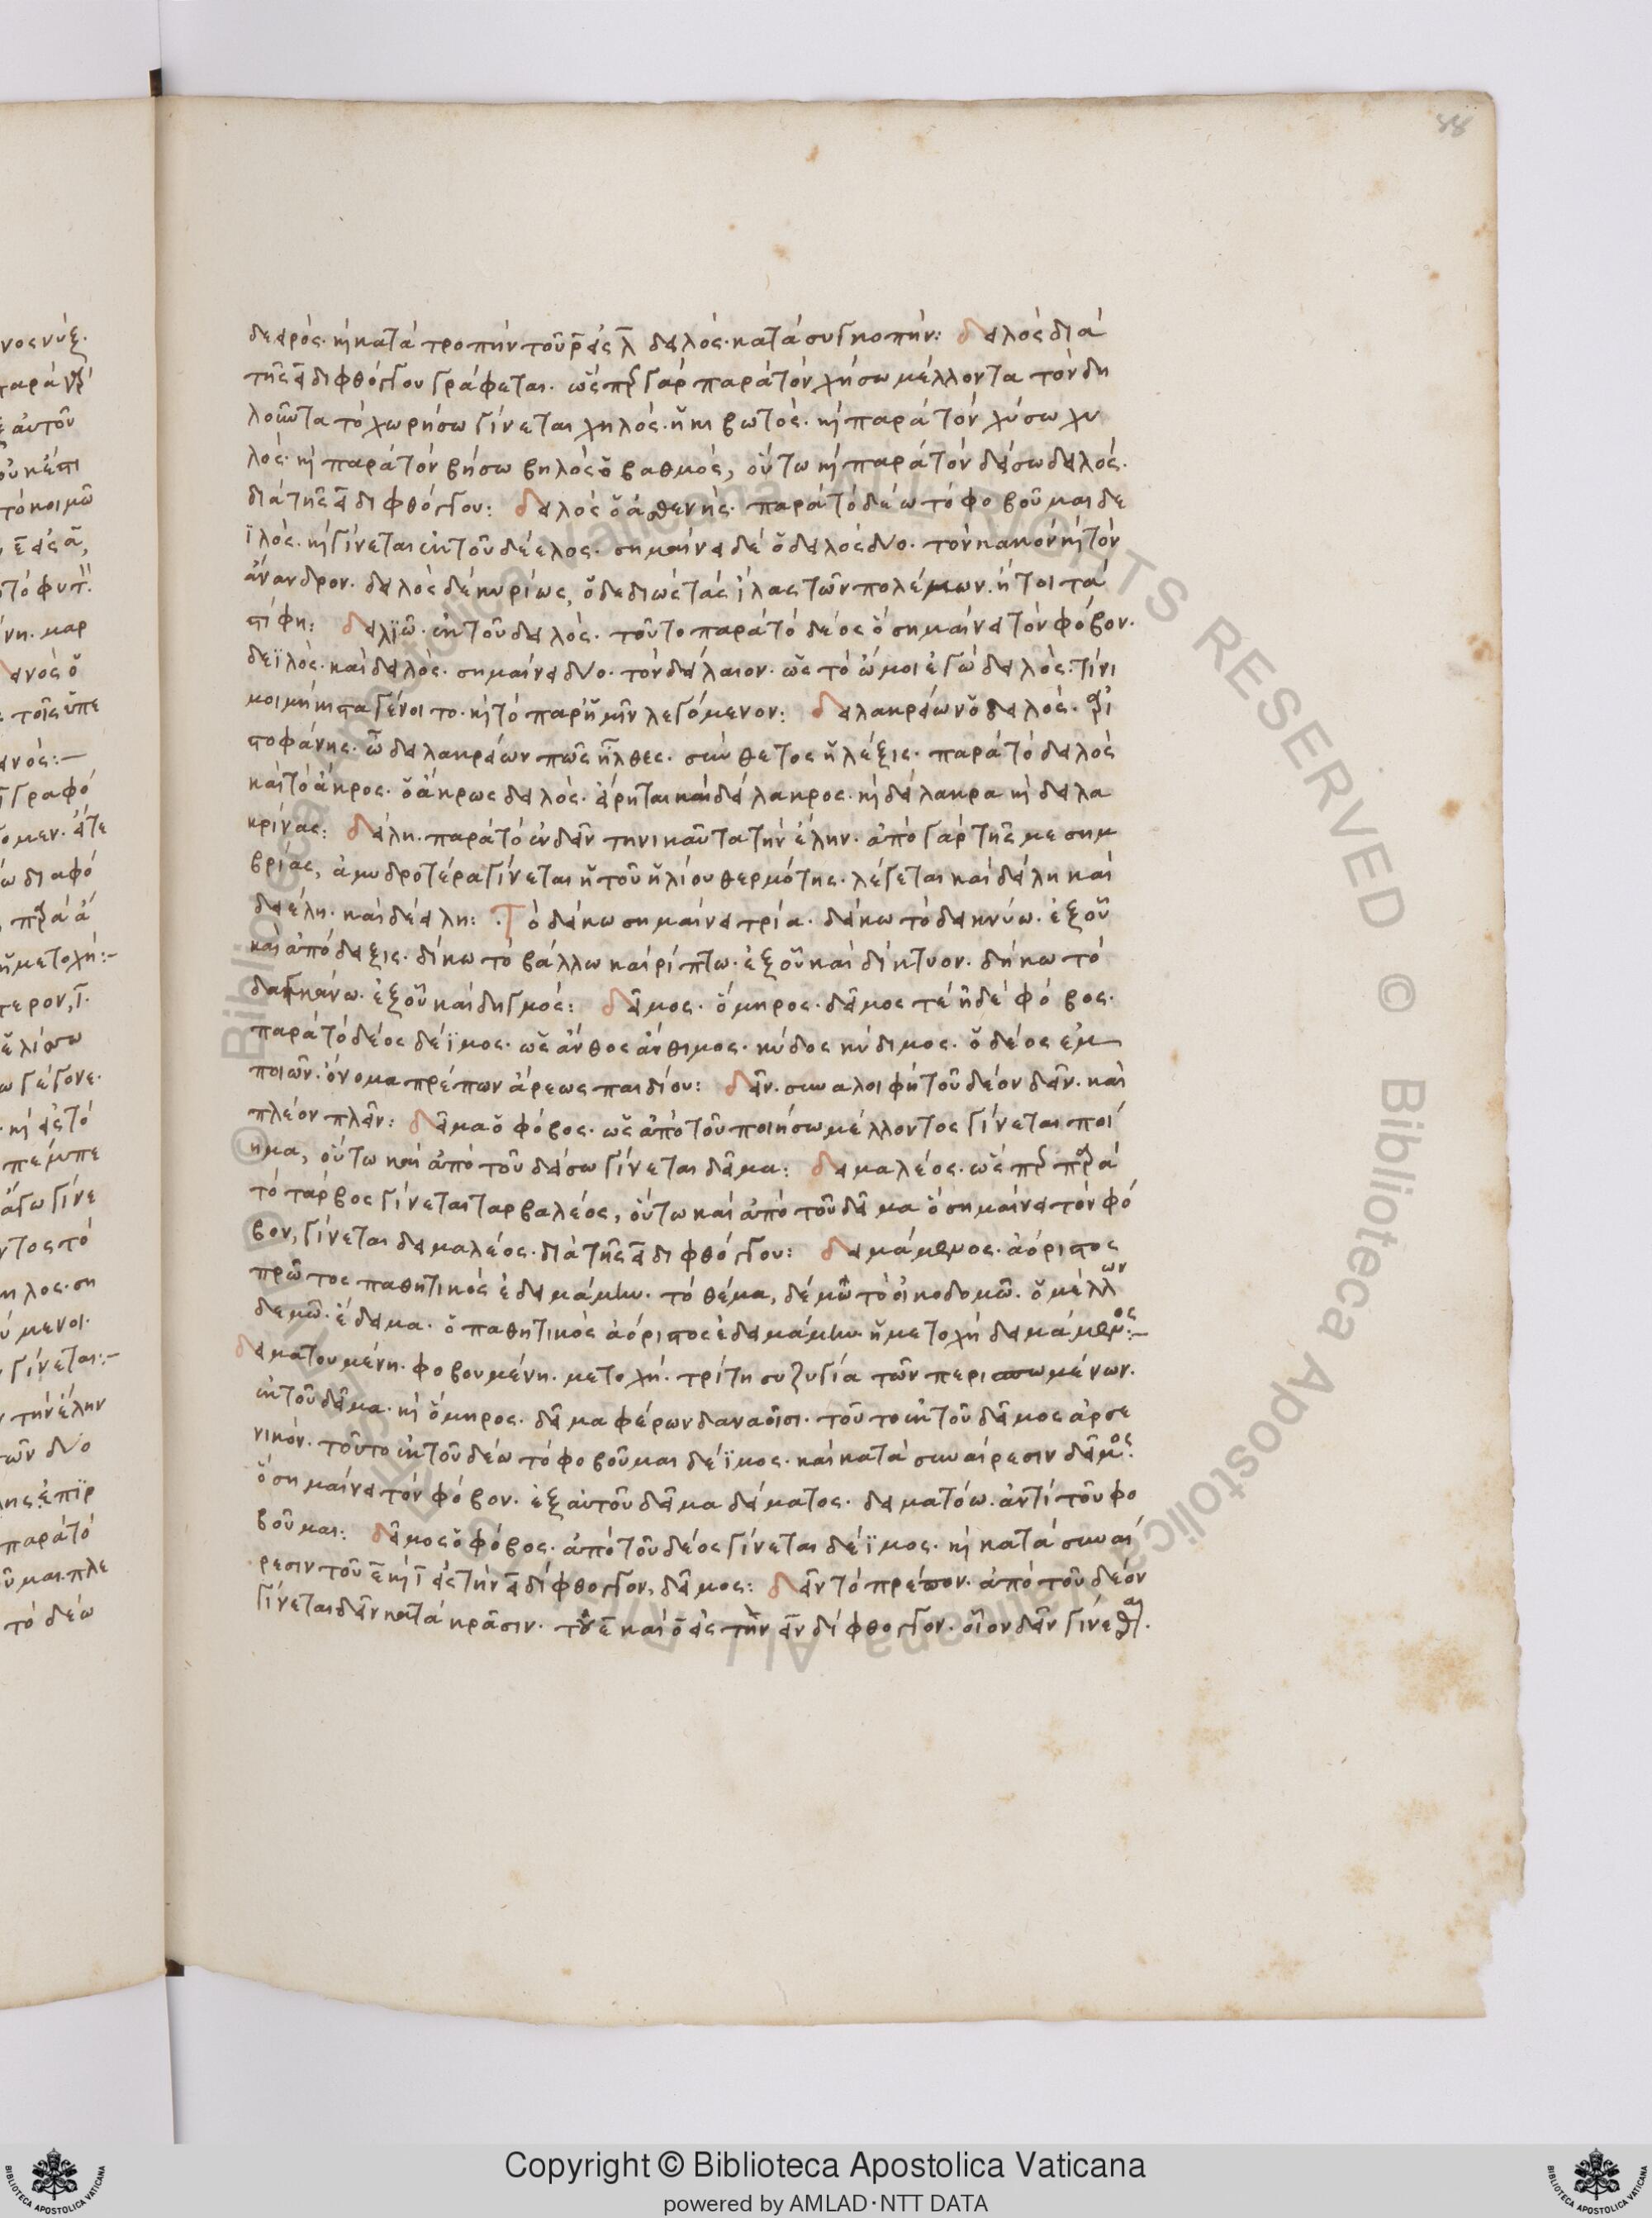 δειρός· καὶ κατὰ τροπὴν τοῦ ρ̄ εἰς λ̄ δειλός· κατὰ συγκοπήν: δειλὸς διὰ
τῆς ει διφθόγγου γράφεται. ὥσπερ γὰρ παρὰ τὸν χήσω μέλλοντα τὸν δη
λοῦντα τὸ χωρήσω γίνεται χηλὸς· ἡ κιβωτός· καὶ παρὰ τὸν χύσω χυ
λός· καὶ παρὰ τὸν βήσω βηλὸς ὁ βαθμός, οὕτω καὶ παρὰ τὸν δείσω δειλός·
διὰ τῆς ει διφθόγγου: δειλὸς ὁ ἀσθενής· παρὰ τὸ δέω τὸ φοβοῦμαι δε
ϊλός· καὶ γίνεται ἐκ τοῦ δέελος· σημαίνει δὲ ὁ δειλὸς δύο· τὸν κακὸν καὶ τὸν
ἄνανδρον· δειλὸς δὲ κυρίως, ὁ δεδιὼς τὰς ἴλας τῶν πολέμων. ἤτοι τὰ
στίφη: δειλιῶ· ἐκ τοῦ δειλός· τοῦτο παρὰ τὸ δέος ὃ σημαίνει τὸν φόβον·
δεϊλός· καὶ δειλός· σημαίνει δύο· τὸν δείλαιον· ὡς τὸ ὤμοι ἐγὼ δειλός· τίνι
μοι μήκιστα γένοιτο· καὶ τὸ παρ' ἡμῖν λεγόμενον: δειλακρίων ὁ δειλός· ἀρι
στοφάνης· ὦ δειλακρίων πῶς ἦλθες· σύνθετος ἡ λέξις· παρὰ τὸ δειλὸς
καὶ τὸ ἄκρος· ὁ ἄκρως δειλός· εἴρηται καὶ δείλακρος· καὶ δείλακρα καὶ δειλα
κρίνας: δείλη· παρὰ τὸ ἐνδεῖν τηνικαῦτα τὴν ἕλην· ἀπὸ γὰρ τῆς μεσημ
βρίας, ἀμυδροτέρα γίνεται ἡ τοῦ ἡλίου θερμότης· λέγεται καὶ δείλη καὶ
δείελη· καὶ δέιλη: Τὸ δείκω σημαίνει τρία· δείκω τὸ δεικνύω· ἐξ οὗ
καὶ ἀπόδειξις· δίκω τὸ βάλλω καὶ ρίπτω· ἐξ οὗ καὶ δίκτυον· δήκω τὸ
δαγκάνω· ἐξ οὗ καὶ δηγμός: δεῖμος· ὅμηρος· δεῖμος τε ἠδὲ φόβος·
παρὰ τὸ δέος δέϊμος· ὡς ἄνθος ἄνθιμος· κύδος κύδιμος· ὁ δέος ἐμ
ποιῶν· ὄνομα πρέπων ἄρεως παιδίου: δεῖν· συναλοιφὴ τοῦ δέον δεῖν· καὶ
πλέον πλεῖν: δεῖμα ὁ φόβος· ὡς ἀπὸ τοῦ ποιήσω μέλλοντος γίνεται ποί
ημα, οὕτω καὶ ἀπὸ τοῦ δείσω γίνεται δεῖμα: δειμαλέος· ὥσπερ παρὰ
τὸ τάρβος γίνεται ταρβαλέος, οὕτω καὶ ἀπὸ τοῦ δεῖμα ὃ σημαίνει τὸν φό
βον, γίνεται δειμαλέος· διὰ τῆς ει διφθόγγου: δειμάμενος· ἀόριστος
πρῶτος παθητικὸς ἐδειμάμην· τὸ θέμα, δέμω τὸ οἰκοδομῶ· ὁ μέλλων
δεμῶ· ἔδειμα· ὁ παθητικὸς ἀόριστος ἐδειμάμην· ἡ μετοχὴ δειμάμενος:–
δειματουμένη· φοβουμένη· μετοχή· τρίτη συζυγία τῶν περισπωμένων·
ἐκ τοῦ δεῖμα· καὶ ὅμηρος· δεῖμα φέρων δαναοῖσι· τοῦτο ἐκ τοῦ δεῖμος ἀρσε
νικόν· τοῦτο ἐκ τοῦ δέω τὸ φοβοῦμαι δέϊμος· καὶ κατὰ συναίρεσιν δεῖμος·
ὃ σημαίνει τὸν φόβον· ἐξ αὐτοῦ δεῖμα δείματος· δειματόω· ἀντὶ τοῦ φο
βοῦμαι: δεῖμος ὁ φόβος· ἀπὸ τοῦ δέος γίνεται δέϊμος· καὶ κατὰ συναί
ρεσιν τοῦ ε̄ καὶ ῑ εἰς τὴν ει δίφθογγον, δεῖμος: δεῖν τὸ πρέπον· ἀπὸ τοῦ δέον
γίνεται δεῖν κατὰ κρᾶσιν· τοῦ ε̄ καὶ ο̄ εἰς τὴν ειν δίφθογγον· οἷον δεῖν γίνεσθαι.
Copyright © Biblioteca Apostolica Vaticana
powered by AMLAD·NTT DATA